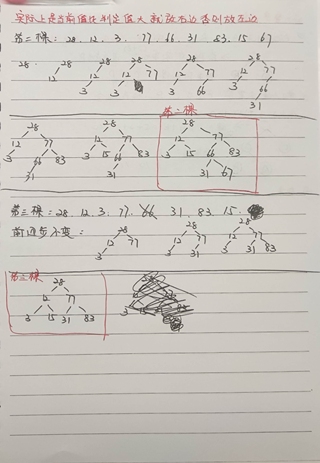 实际上是否前值比判定值大 就放右边 否则放左边
第二棵: 28. 12. 3. 77. 66. 31. 83. 15. 67
28. 28 28 28 28 28
12 12 12 77 12 77 12 77
3 3 3 66 3 66
31
第二棵
28 28 28
12 77 12 77 12 77
3 66 83 3 15 66 83 3 15 66 83
31 31 31 67
第三棵: 28. 12. 3. 77. 66 31 83. 15.
前边步不变: 28 28 28
12 77 12 77 12 77
3 3 31 3 31 83
第三棵
28
12 77
3 15 31 83